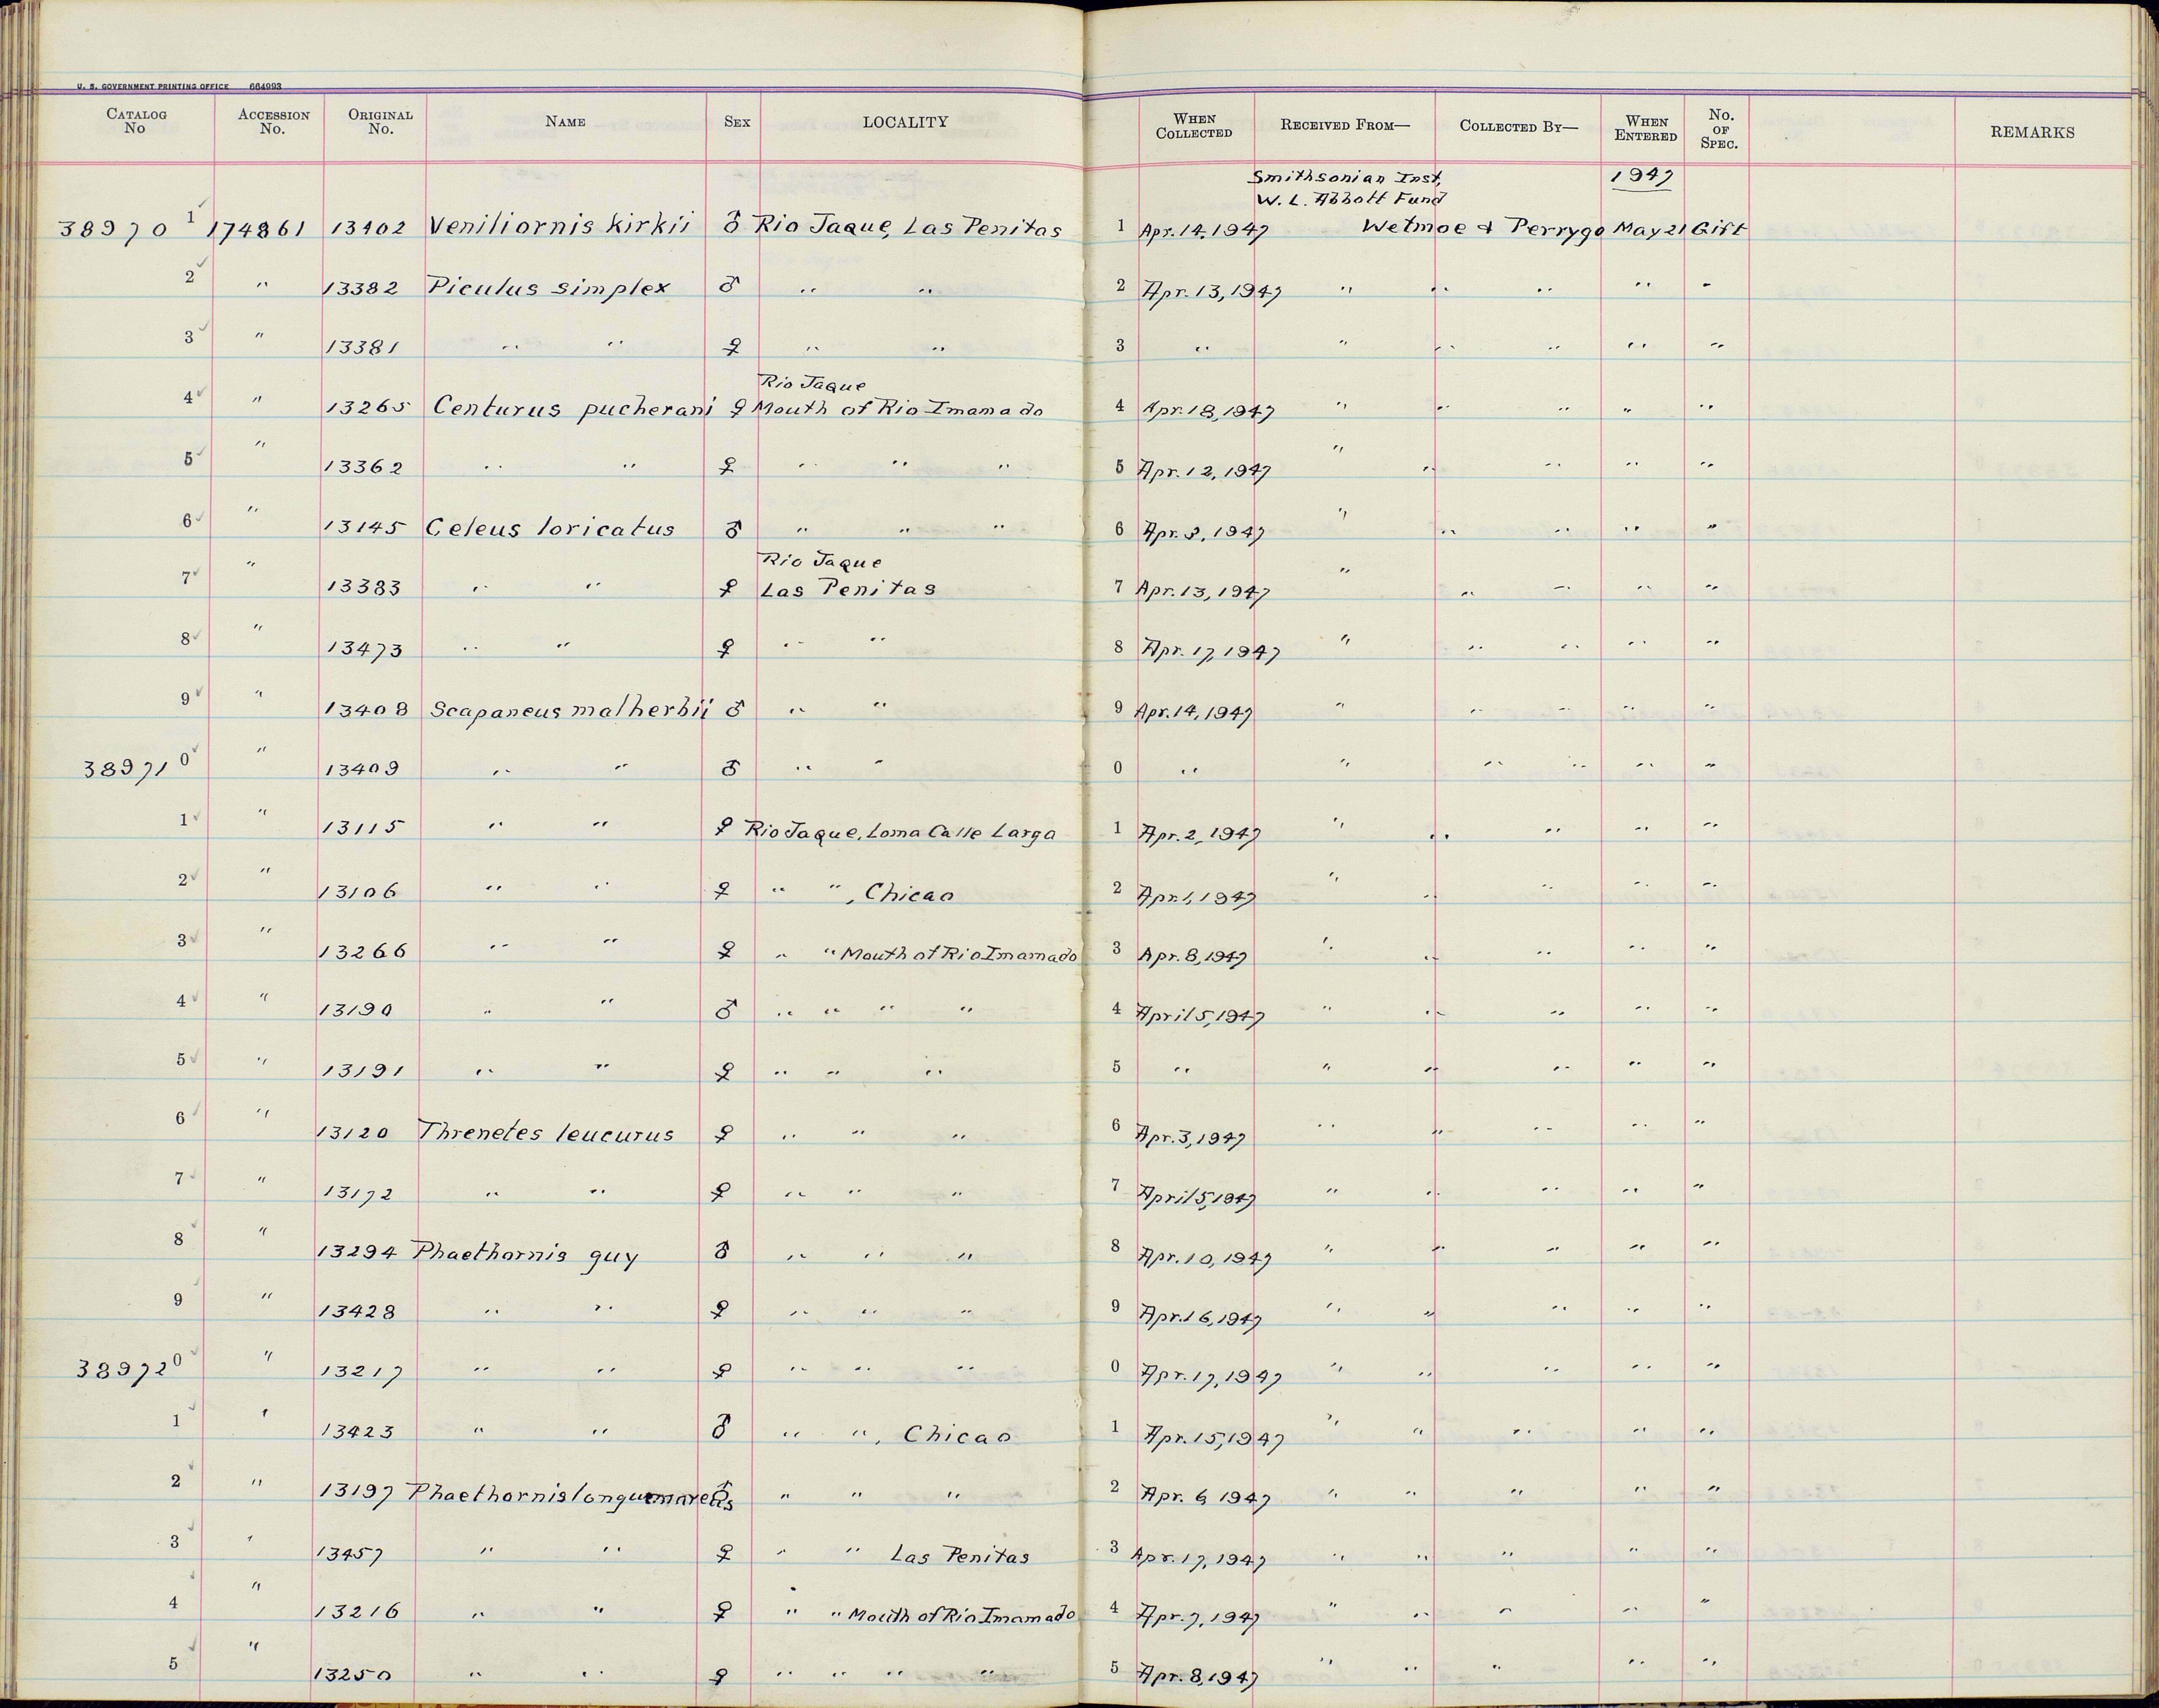 U. S. GOVERNMENT PRINTING OFFICE 664993
CATALOG No ACCESSION No. ORIGINAL No. NAME SEX LOCALITY WHEN COLLECTED RECEIVED FROM— COLLECTED BY— WHEN ENTERED No. OF SPEC. REMARKS
Smithsonian Inst, 1947
W. L. Abbott Fund
38970 1 174861 13402 Veniliornis kirkii ♂ Rio Jaque, Las Penitas 1 Apr. 14, 1947 Wetmoe & Perrygo May 21 Gift
2 " 13382 Piculus simplex ♂ " " 2 Apr. 13, 1947 " " " " "
3 " 13381 " " ♀ " " 3 " " " " " "
Rio Jaque
4 " 13265 Centurus pucherani ♀ Mouth of Rio Imamado 4 Apr. 18, 1947 " " " " "
5 " 13362 " " ♀ " " " 5 Apr. 12, 1947 " " " " "
6 " 13145 Celeus loricatus ♂ " " " 6 Apr. 3, 1947 " " " " "
Rio Jaque
7 " 13383 " " ♀ Las Penitas 7 Apr. 13, 1947 " " " " "
8 " 13473 " " ♀ " " 8 Apr. 17, 1947 " " " " "
9 " 13408 Scapaneus malherbii ♂ " " 9 Apr. 14, 1947 " " " " "
38971 0 " 13409 " " ♂ " " 0 " " " " " "
1 " 13115 " " ♀ Rio Jaque, Loma Calle Larga 1 Apr. 2, 1947 " " " " "
2 " 13106 " " ♀ " ", Chicao 2 Apr. 1, 1947 " " " " "
3 " 13266 " " ♀ " " Mouth of Rio Imamado 3 Apr. 8, 1947 " " " " "
4 " 13190 " " ♂ " " " " 4 April 5, 1947 " " " " "
5 " 13191 " " ♀ " " " 5 " " " " " "
6 " 13120 Threnetes leucurus ♀ " " " 6 Apr. 3, 1947 " " " " "
7 " 13172 " " ♀ " " " 7 April 5, 1947 " " " " "
8 " 13294 Phaethornis guy ♂ " " " 8 Apr. 10, 1947 " " " " "
9 " 13428 " " ♀ " " " 9 Apr. 16, 1947 " " " " "
38972 0 " 13217 " " ♀ " " " 0 Apr. 17, 1947 " " " " "
1 " 13423 " " ♂ " ", Chicao 1 Apr. 15, 1947 " " " " "
2 " 13197 Phaethornis longuemareus ♂ " " " 2 Apr. 6, 1947 " " " " "
3 " 13457 " " ♀ " " Las Penitas 3 Apr. 17, 1947 " " " " "
4 " 13216 " " ♀ " " Mouth of Rio Imamado 4 Apr. 7, 1947 " " " " "
5 " 13250 " " ♀ " " " " 5 Apr. 8, 1947 " " " " "